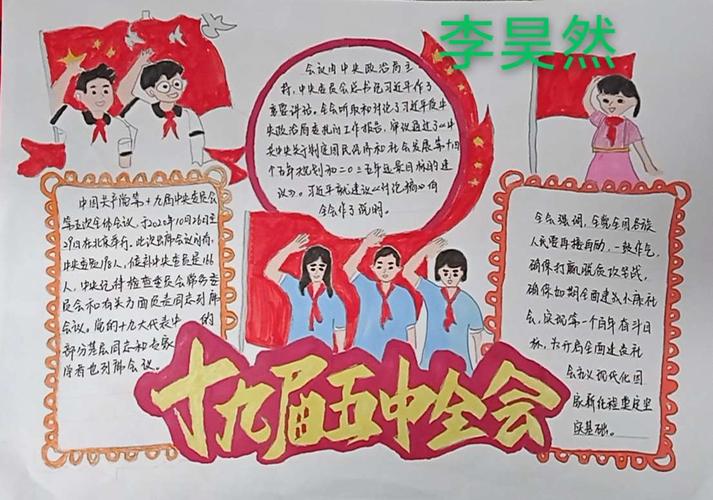 李昊然
会议由中央政治局主
持，中央委员会总书记习近平作了
重要讲话。全会听取和讨论了习近平受中
央政治局委托的工作报告，审议通过了《中
共中央关于制定国民经济和社会发展第十四
个五年规划和二〇三五年远景目标的建
议》。习近平就建议《讨论稿》向
全会作了说明。
中国共产党第十九届中央委员会
第五次全体会议，于2020年10月26日至
29日在北京举行。此次出席会议的有，
中央委员198人，候补中央委员166
人，中央纪律检查委员会常务委
员会和有关方面负责同志列席
会议。党的十九大代表中的
部分基层同志和专家
学者也列席会议。
全会强调，全党全国各族
人民要再接再励，一鼓作气，
确保打赢脱贫攻坚战，
确保如期全面建成小康社
会，实现第一个百年奋斗目
标，为开启全面建设社
会主义现代化国
家新征程奠定坚
实基础。
十九届五中全会